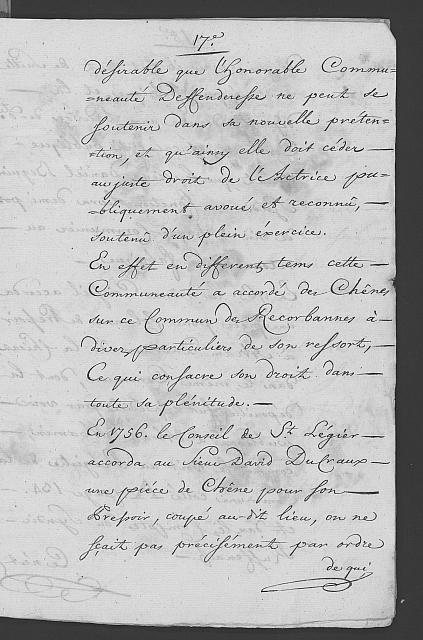 17.e
désirable que l'honorable Commu=
=neauté Deffenderesse ne peut se
soutenir dans sa nouvelle preten=
=tion, et qu'ainsy elle doit céder —
au juste droit de l'Actrice pu=
=bliquement avoué et reconnû, —
soutenû d'un plein éxercice.
En effet en different, tems cette —
Communeauté a accordé des Chênes
sur ce Commun des Recorbannes à=
divers particuliers de son ressort, —
Ce qui consacre son droit dans —
toute sa plénitude. —
En 1756. le Conseil de St. Légier —
accorda au Sieur David DuCraux —
une piéce de Chêne pour son —
Pressoir, coupé au-dit lieu, on ne
sçait pas précisément par ordre
de qui